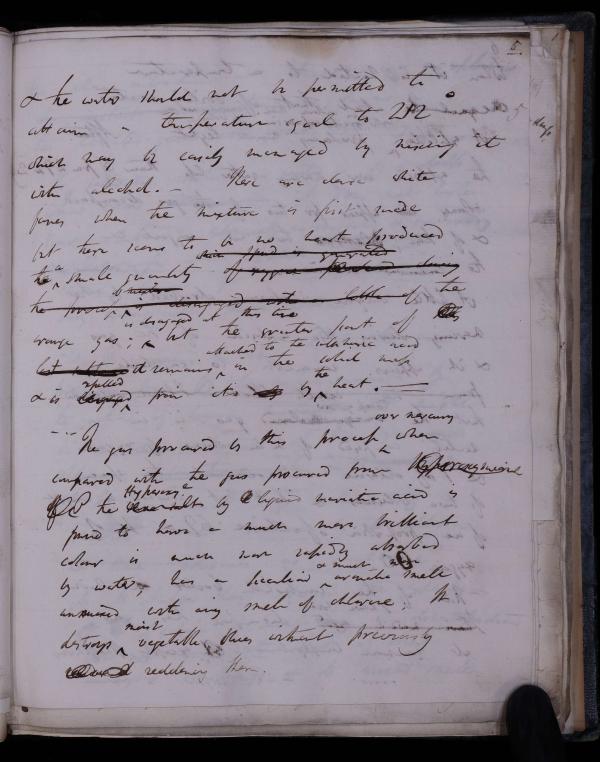 5.
& the water should not be permitted to
attain a temperature equal to 212°
which may be easily managed by mixing it
with alcohol. — There are dense white
fumes when the mixture is first made
but there seems to be no heat produced
the a small quantity
of the
is disengaged at this time
orange gas; but the greater part of
attached to the
it remains, in the solid mass
& is expelled from it by the heat. —
The gas procured by this process over mercury when
compared with the gas procured from
the Hyperoxy by liquid muriatic acid is
found to have a much more brilliant
colour is much more rapidly absorbed
by water, has a peculiar & much more aromatic smell
unmixed with any smell of chlorine. It
destroys moist vegetable blues without previously
reddening them.